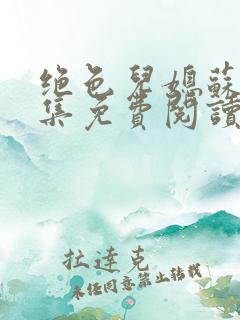 绝色儿媳苏
集免费阅读
拉达克
未经同意禁止转载